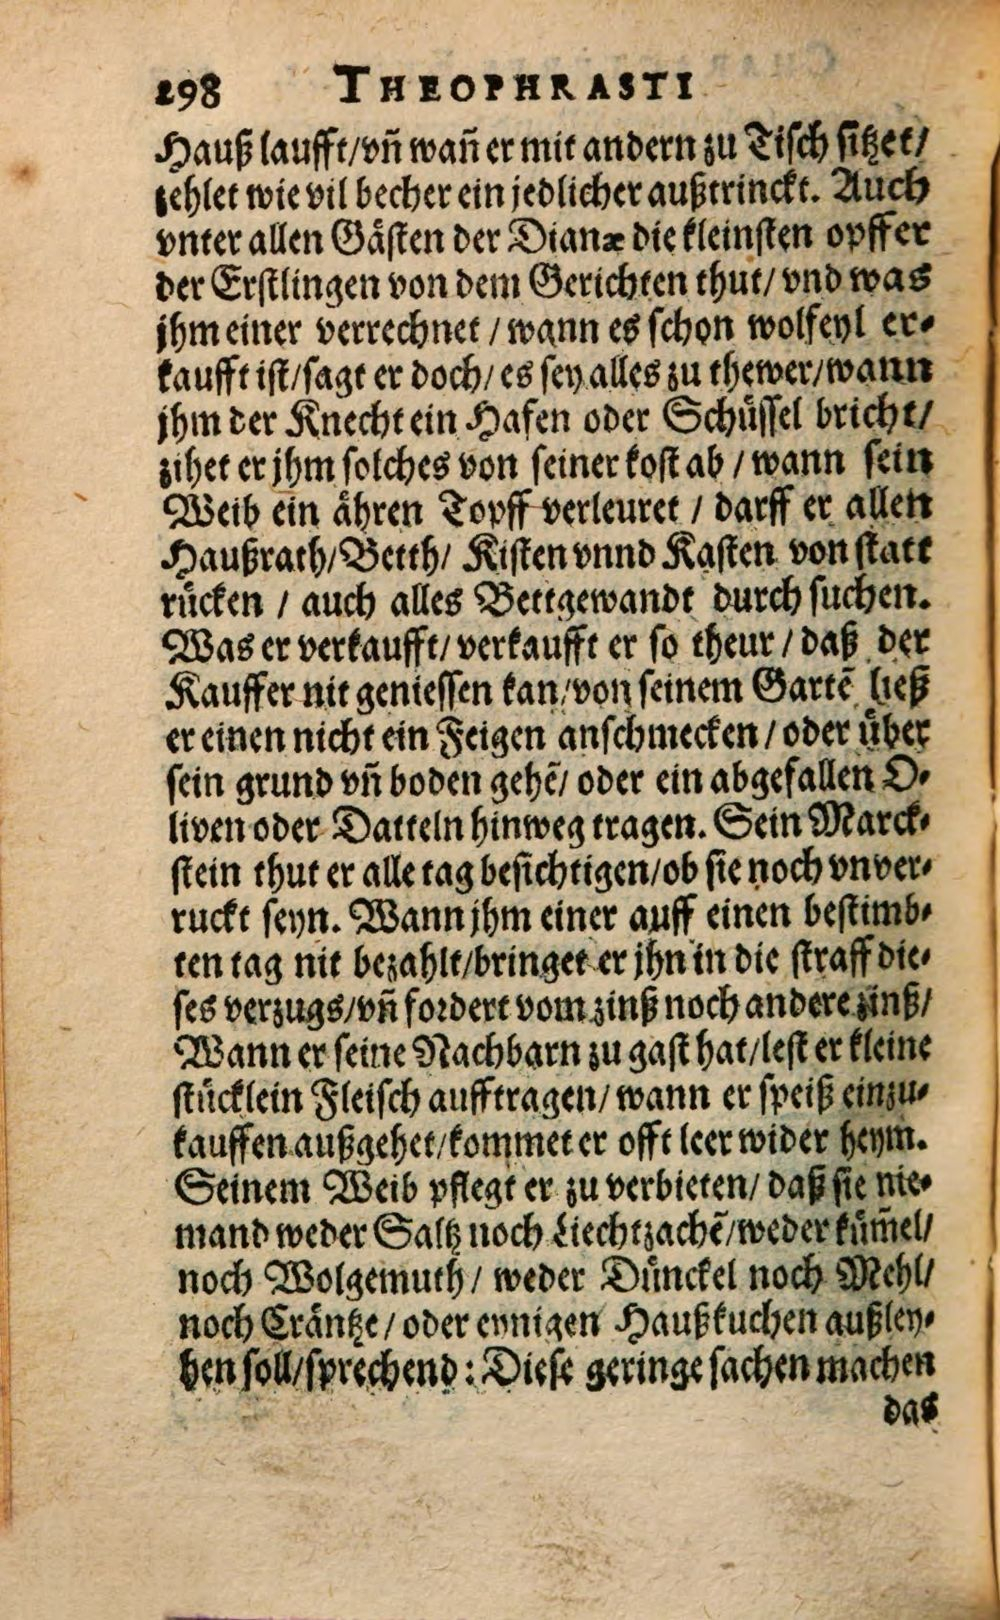 298 THEOPHRASTI
Hauß laufft/vñ wañ er mit andern zu Tisch sitzet/
zehlet wie vil becher ein jedlicher außtrinckt. Auch
vnter allen Gästen der Dianæ die kleinsten opffer
der Erstlingen von dem Gerichten thut/ vnd was
jhm einer verrechnet / wann es schon wolfeyl er-
kaufft ist/sagt er doch/ es sey alles zu thewer/wann
jhm der Knecht ein Hafen oder Schüssel bricht/
zihet er jhm solches von seiner kost ab / wann sein
Weib ein ähren Topff verleuret / darff er allen
Haußrath/Betth/ Kisten vnnd Kasten von statt
rücken / auch alles Bettgewandt durch suchen.
Was er verkaufft/ verkaufft er so theur / daß der
Kauffer nit geniessen kan/ von seinem Gartẽ ließ
er einen nicht ein Feigen anschmecken / oder über
sein grund vñ boden gehẽ/ oder ein abgefallen O-
liven oder Datteln hinweg tragen. Sein Marck-
stein thut er alle tag besichtigen/ob sie noch vnver-
ruckt seyn. Wann jhm einer auff einen bestimb-
ten tag nit bezahlt/bringet er jhn in die straff die-
ses verzugs/vñ fordert vom zinß noch andere zinß/
Wann er seine Nachbarn zu gast hat/lest er kleine
stücklein Fleisch aufftragen/ wann er speiß einzu-
kauffen außgehet/kommet er offt leer wider heym.
Seinem Weib pflegt er zu verbieten/ daß sie nie-
mand weder Saltz noch Liechtzachẽ/weder küm̃el/
noch Wolgemuth/ weder Dünckel noch Mehl/
noch Cräntze/ oder eynigen Haußkuchen außley-
hen soll/sprechend: Diese geringe sachen machen
das